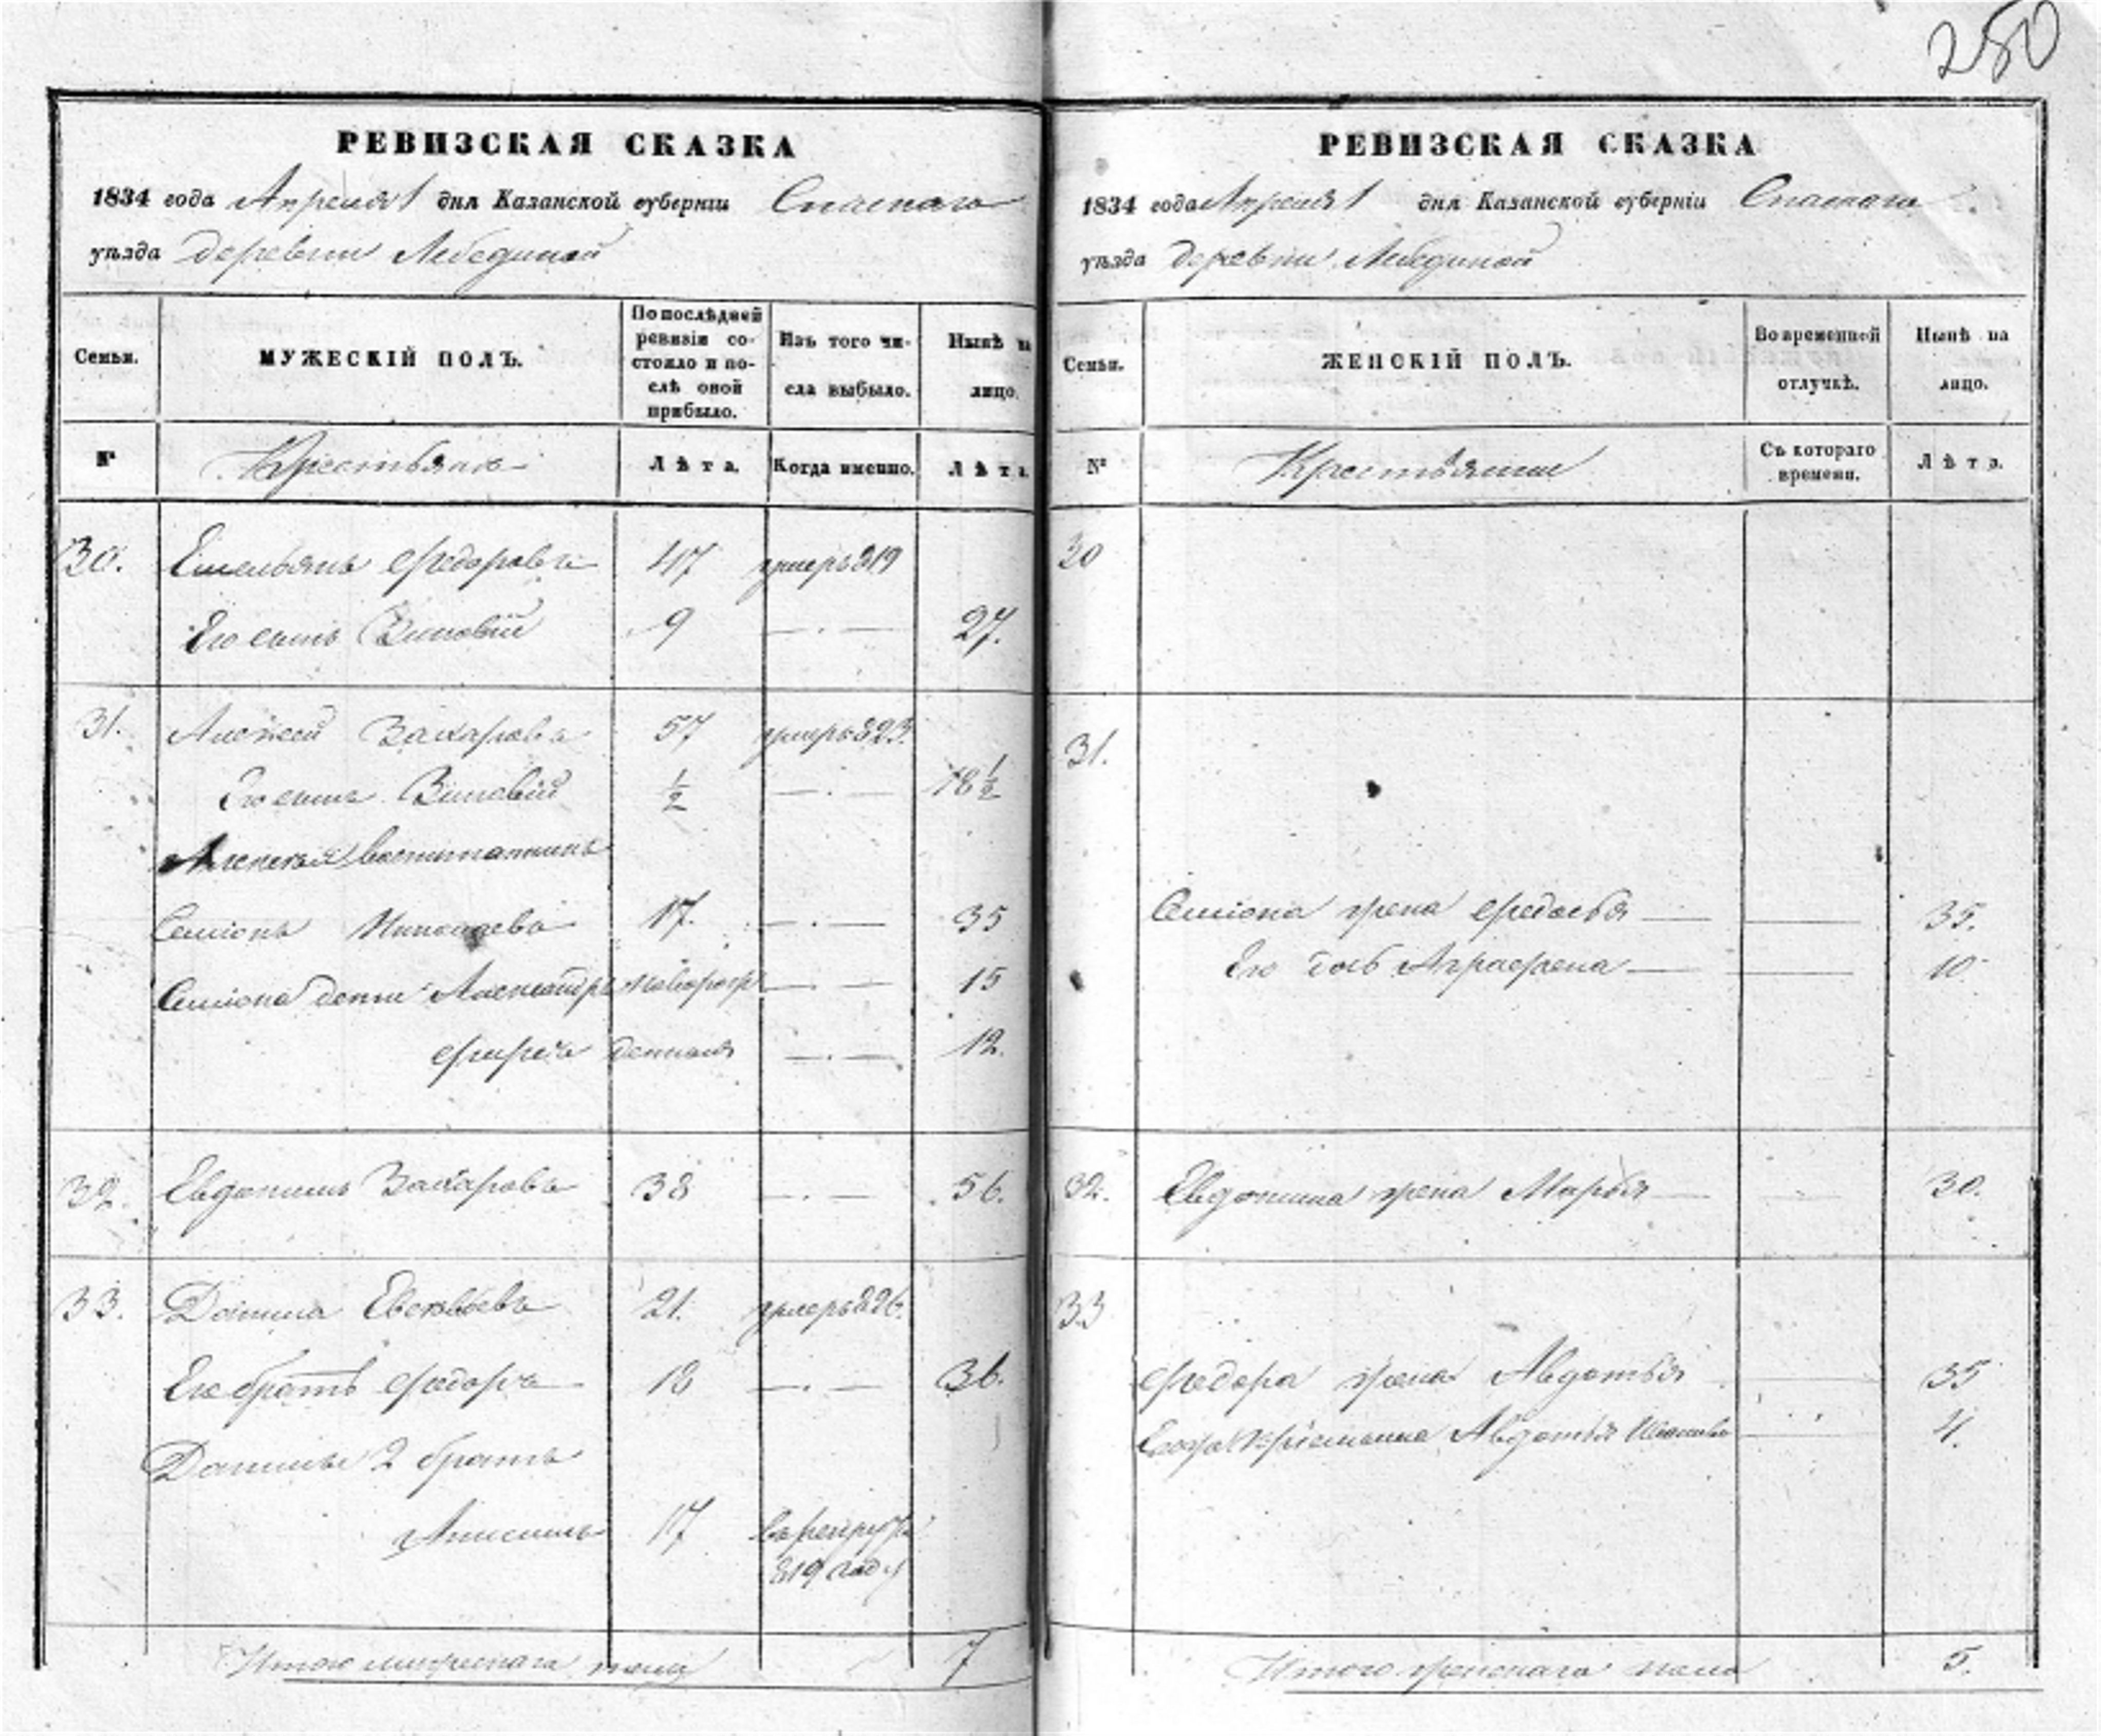 280
РЕВИЗСКАЯ СКАЗКА
1834 года Апреля 1 дня Казанской губернiи Спаскаго
уѣзда деревни Лебединой
Семьи.
МУЖЕСКIЙ ПОЛЪ.
По послѣдней ревизiи состояло и послѣ оной прибыло.
Изъ того числа выбыло.
Нынѣ на лицо.
№
Крестьяне
Лѣта.
Когда именно.
Лѣта.
30. Емельянъ Федоровъ 47 умеръ 819
Его сынъ Зиновiй 9 27.
31. Алексей Захаровъ 57 умеръ 823.
Его сынъ Зиновiй ½ 18½
Алексея воспитанникъ
Семiонъ Николаевъ 17. 35
Семiона дети Александръ новорож 15
Фирсъ денныя 12.
32. Евдокимъ Захаровъ 38 56.
33. Данила 21. умеръ 826.
Его братъ Федоръ 18 36.
Данилы 2 братъ
Анисимъ 17 въ рекруты
819 году
Итого мужескаго полу 7
РЕВИЗСКАЯ СКАЗКА
1834 года Апреля 1 дня Казанской губернiи Спаскаго
уѣзда деревни Лебединой
Семьи.
ЖЕНСКIЙ ПОЛЪ.
Во временной отлучкѣ.
Нынѣ на лицо.
№
Крестьянки
Съ котораго времени.
Лѣта.
30
31.
Семiона жена Федосья 35.
Его дочь Аграфена 10
32. Евдокима жена Марья 30.
33
Федора жена Авдотья 35
Авдотья 4.
Итого женскаго пола 5.